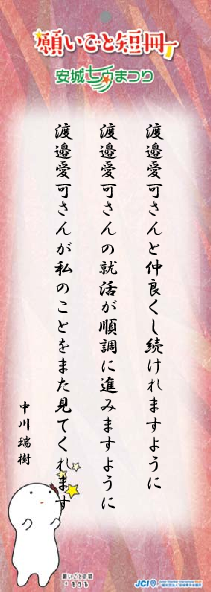 願いごと短冊
安城七夕まつり
渡邉愛可さんと仲良くし続けれますように
渡邉愛可さんの就活が順調に進みますように
渡邉愛可さんが私のことをまた見てくれます
中川瑞樹
願いごと短冊
JCI